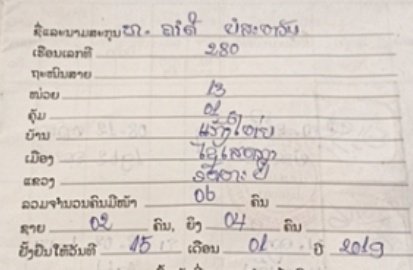 ຊື່ແລະນາມສະກຸນ ທ. ຄຳດີ
ເຮືອນເລກທີ 280
ຖະໜົນສາຍ
ໜ່ວຍ 13
ຄຸ້ມ 01
ບ້ານ
ເມືອງ ໄຊເສດຖາ
ແຂວງ
ລວມຈຳນວນຄົນມີໜ້າ 06 ຄົນ
ຊາຍ 02 ຄົນ, ຍິງ 04 ຄົນ
ຢັ້ງຢືນໃຫ້ວັນທີ 15 ເດືອນ 01 ປີ 2019